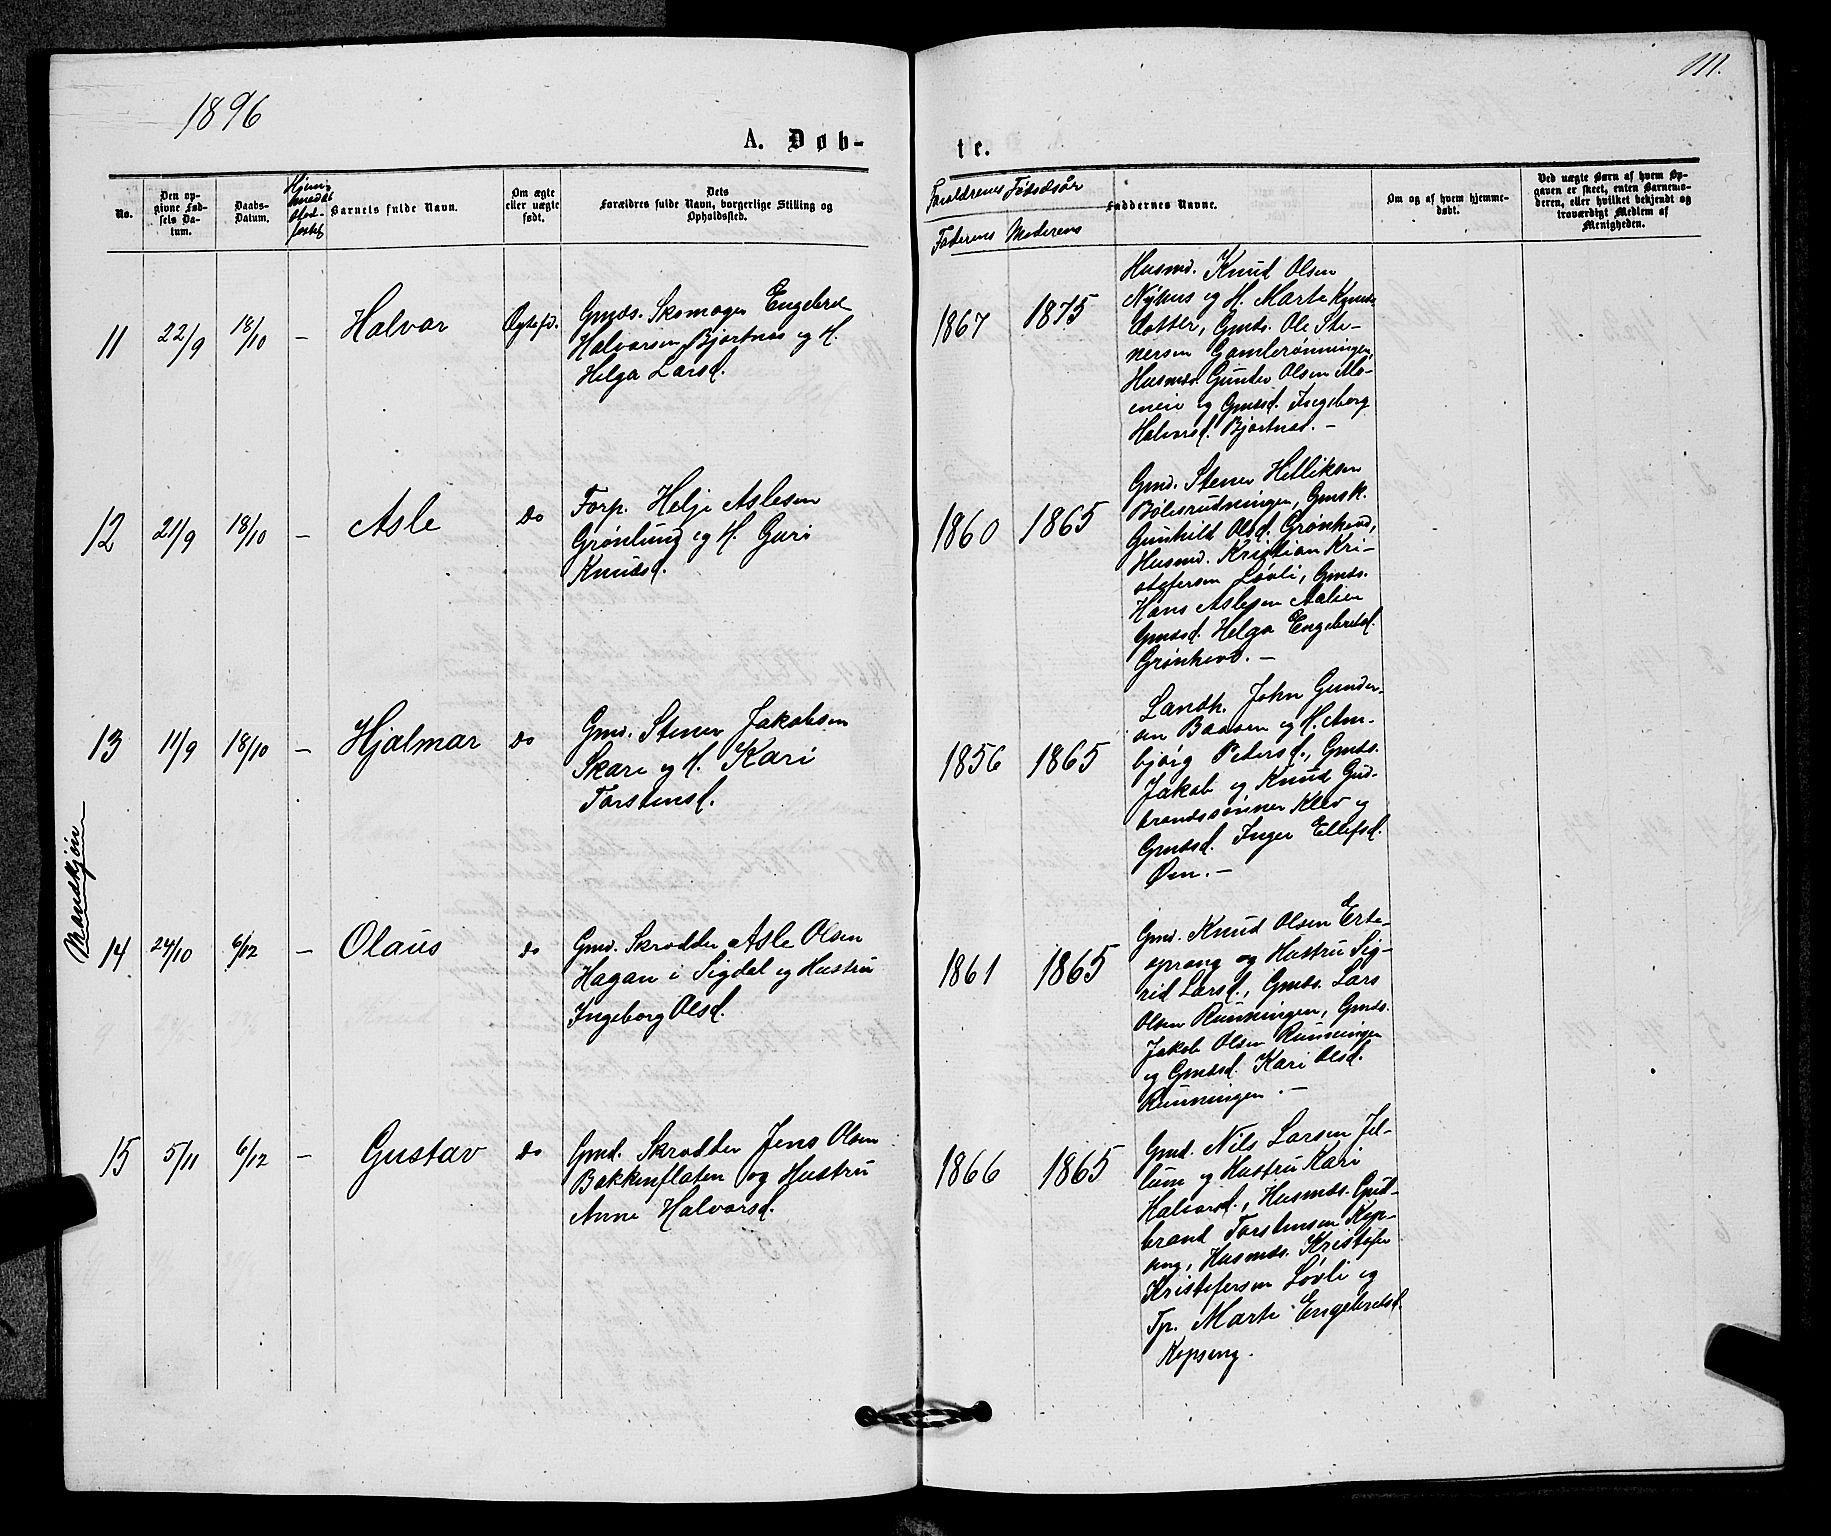 1896
111.
A. Døb-
te.
No.
Den op-
givne Fød-
sels Da-
tum.
Daabs-
Datum.
Barnets fulde Navn.
Om ægte
eller uægte
født.
Dets
Forældres fulde Navn, borgerlige Stilling og
Opholdssted.
Forældrenes Fødselsår
Faderens Moderens
Faddernes Navne.
Om og af hvem hjemme-
døbt.
Ved uægte Børn af hvem Op-
gaven er skeet, enten Barnemo-
deren, eller hvilket bekjendt og
troværdigt Medlem af
Menigheden.
Mandkjøn
11 22/9 18/10 – Halvor Ægtefd.
Gmds. Skomager Engebret
Halvorsen Bjørtnes og H.
Helga Larsd.
1867 1875
Husmd. Knud Olsen
Nyhus og H. Marte Knuds-
datter, Gmds. Ole Ste-
nersen Gamlerønningen,
Husmds. Gunder Olsen Mo-
eneie og Gmdsd. Ingeborg
Halvorsd. Bjørtnes. –
12 21/9 18/10 – Asle do
Forp. Helje Aslesen
Grønlund og H. Guri
Knudsd.
1860 1865
Gmd. Stener Helliksen
Bølesrudningen, Gmsk.
Gunhild Olsd. Grønhovd,
Husmd. Kristian Kri-
stofersen Løvli, Gmds.
Hans Aslesen Aalien
Gmdsd. Helga Engebretsd.
Grønhovd. –
13 11/9 18/10 – Hjalmar do
Gmd. Stener Jakobsen
Skare og H. Kari
Torstensd.
1856 1865
Landh. John Gunder-
sen Baasen og H. Am-
bjørg Petersd., Gmds.
Jakob og Knud Gud-
brandssønner Klev og
Gmdsd. Inger Ellefsd.
Øen. –
14 24/10 6/12 – Olaus do
Gmd. Skrædder Asle Olsen
Hagan i Sigdal og Hustru
Ingeborg Olsd.
1861 1865
Gmd. Knud Olsen Erte-
sprang og Hustru Sig-
rid Larsd., Gmds. Lars
Olsen Runningen, Gmds.
Jakob Olsen Runningen
og Gmdsd. Kari Olsd.
Runningen. –
15 5/11 6/12 – Gustav do
Gmd. Skrædder Jens Olsen
Bakkenflaten og Hustru
Anne Halvorsd.
1866 1865
Gmd. Nils Larsen Jel-
lum og Hustru Kari
Halvorsd., Husmds. Gud-
brand Torstensen Kop-
seng, Husmds. Kristofer
Kristofersen Løvli og
Tp. Marte Engebretsd.
Kopseng.